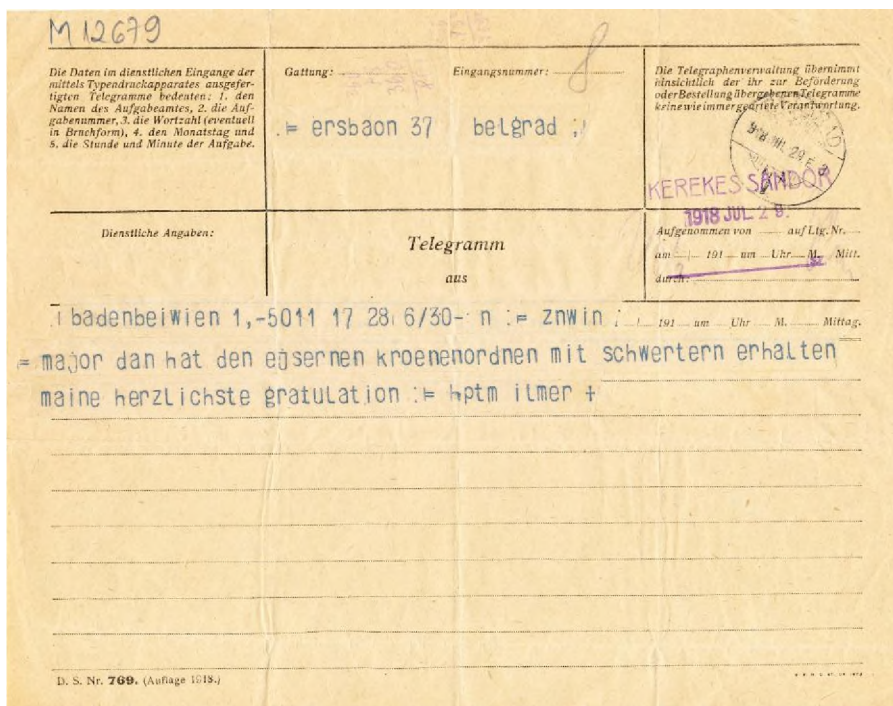 M 12679
Die Daten im dienstlichen Eingange der
mittels Typendruckapparates ausgefer-
tigten Telegramme bedeuten: 1. den
Namen des Aufgabeamtes, 2. die Auf-
gabenummer, 3. die Wortzahl (eventuell
in Bruchform), 4. den Monatstag und
5. die Stunde und Minute der Aufgabe.
Gattung:
Eingangsnummer:
8
:= ersbaon 37 belgrad
Die Telegraphenverwaltung übernimmt
hinsichtlich der ihr zur Beförderung
oder Bestellung übergebenen Telegramme
keine wie immer geartete Verantwortung.
KEREKES SÁNDOR
1918 JUL 29.
Dienstliche Angaben:
Telegramm
aus
Aufgenommen von auf Ltg. Nr.
am 191 um Uhr M. Mitt.
durch:
badenbeiwien 1,-5011 17 28 6/30- n := znwin
191 um Uhr M. Mittag.
= major dan hat den ejsernen kroenenordnen mit schwertern erhalten
maine herzlichste gratulation := hptm ilmer +
D. S. Nr. 769. (Auflage 1918.)